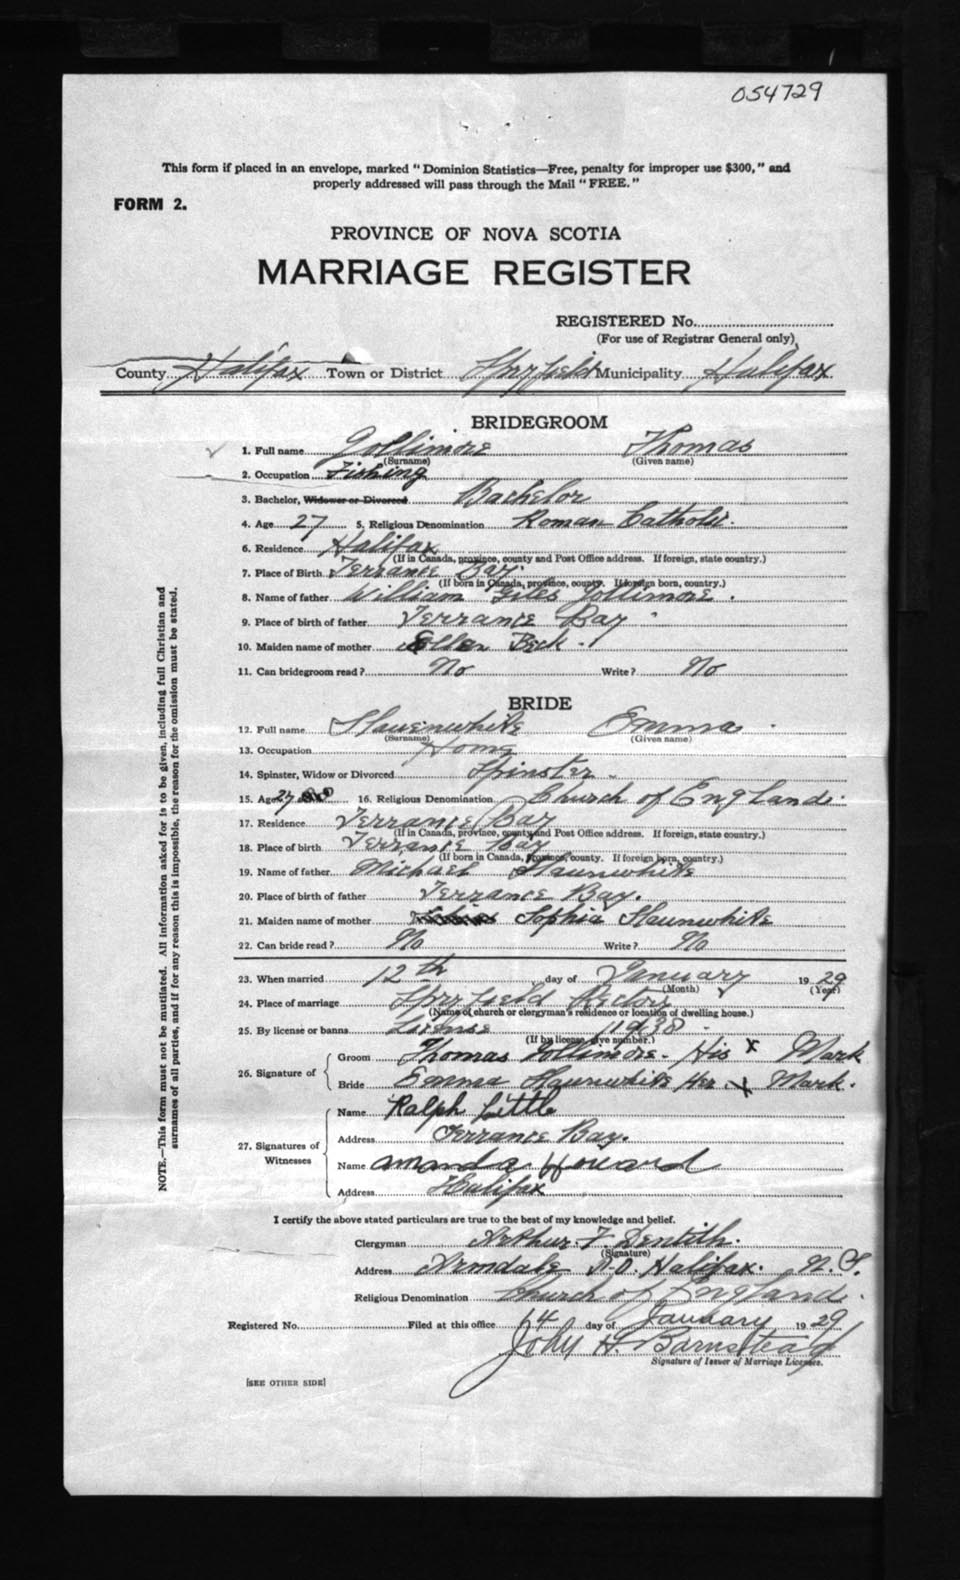 054729
This form if placed in an envelope, marked "Dominion Statistics—Free, penalty for improper use $300," and
properly addressed will pass through the Mail "FREE."
FORM 2.
PROVINCE OF NOVA SCOTIA
MARRIAGE REGISTER
REGISTERED No.
(For use of Registrar General only)
County Halifax Town or District Spryfield Municipality Halifax
BRIDEGROOM
1. Full name Jollimore Thomas
(Surname) (Given name)
2. Occupation Fishing
3. Bachelor, Widower or Divorced Bachelor
4. Age 27 5. Religious Denomination Roman Catholic.
6. Residence Halifax
(If in Canada, province, county and Post Office address. If foreign, state country.)
7. Place of Birth Terrance Bay.
(If born in Canada, province, county. If foreign born, country.)
8. Name of father William Giles Jollimore.
9. Place of birth of father Terrance Bay
10. Maiden name of mother Ellen Beck.
11. Can bridegroom read? No Write? No
BRIDE
12. Full name Slauenwhite Emma
(Surname) (Given name)
13. Occupation Home
14. Spinster, Widow or Divorced Spinster
15. Age 27 16. Religious Denomination Church of England.
17. Residence Terrance Bay
(If in Canada, province, county and Post Office address. If foreign, state country.)
18. Place of birth Terrance Bay
(If born in Canada, province, county. If foreign born, country.)
19. Name of father Michael Slaunwhite
20. Place of birth of father Terrance Bay.
21. Maiden name of mother Sophia Slaunwhite
22. Can bride read? No Write? No
23. When married 12th day of January 1929
(Month) (Year)
24. Place of marriage Spryfield Rectory
(Name of church or clergyman's residence or location of dwelling house.)
25. By license or banns License
(If by license, give number.)
26. Signature of
Groom Thomas Jollimore. His X Mark
Bride Emma Slaunwhite Her X Mark.
27. Signatures of Witnesses
Name Ralph Little
Address Terrance Bay.
Name Amanda Howard
Address Halifax
I certify the above stated particulars are true to the best of my knowledge and belief.
Clergyman Arthur F. Dentith.
(Signature)
Address Armdale P.O. Halifax. N.S.
Religious Denomination Church of England.
Registered No. Filed at this office 14 day of January 1929
John H. Barnstead
Signature of Issuer of Marriage Licenses.
[SEE OTHER SIDE]
NOTE.—This form must not be mutilated. All information asked for is to be given, including full Christian and
surnames of all parties, and if for any reason this is impossible, the reason for the omission must be stated.